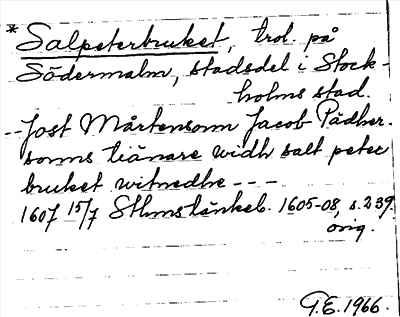 * Salpeterbruket, trol. på
Södermalm, stadsdel i Stock-
holms stad.
-- Jost Mårtensonn Jacob Pådher-
sonns tiänare widh salt peter
bruket witnedhe - - -
1607 15/7 Sthmstänkeb. 1605-08, s. 239.
orig.
G.E. 1966.